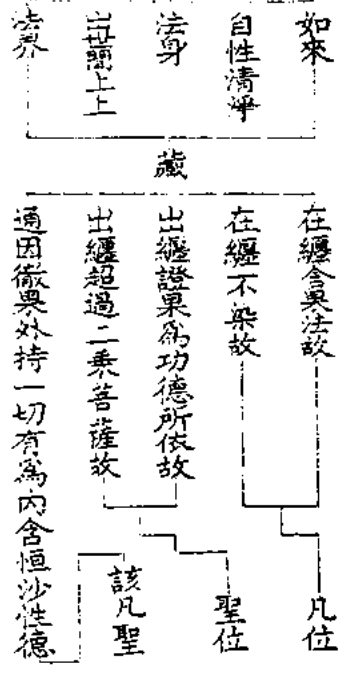 如來
自性清淨
法身
出世間上上
法界
藏
在纏含果法故
在纏不染故
出纏證果為功德所依故
出纏超過二乘菩薩故
通因徹果外持一切有為內含恒沙性德
凡位
聖位
該凡聖